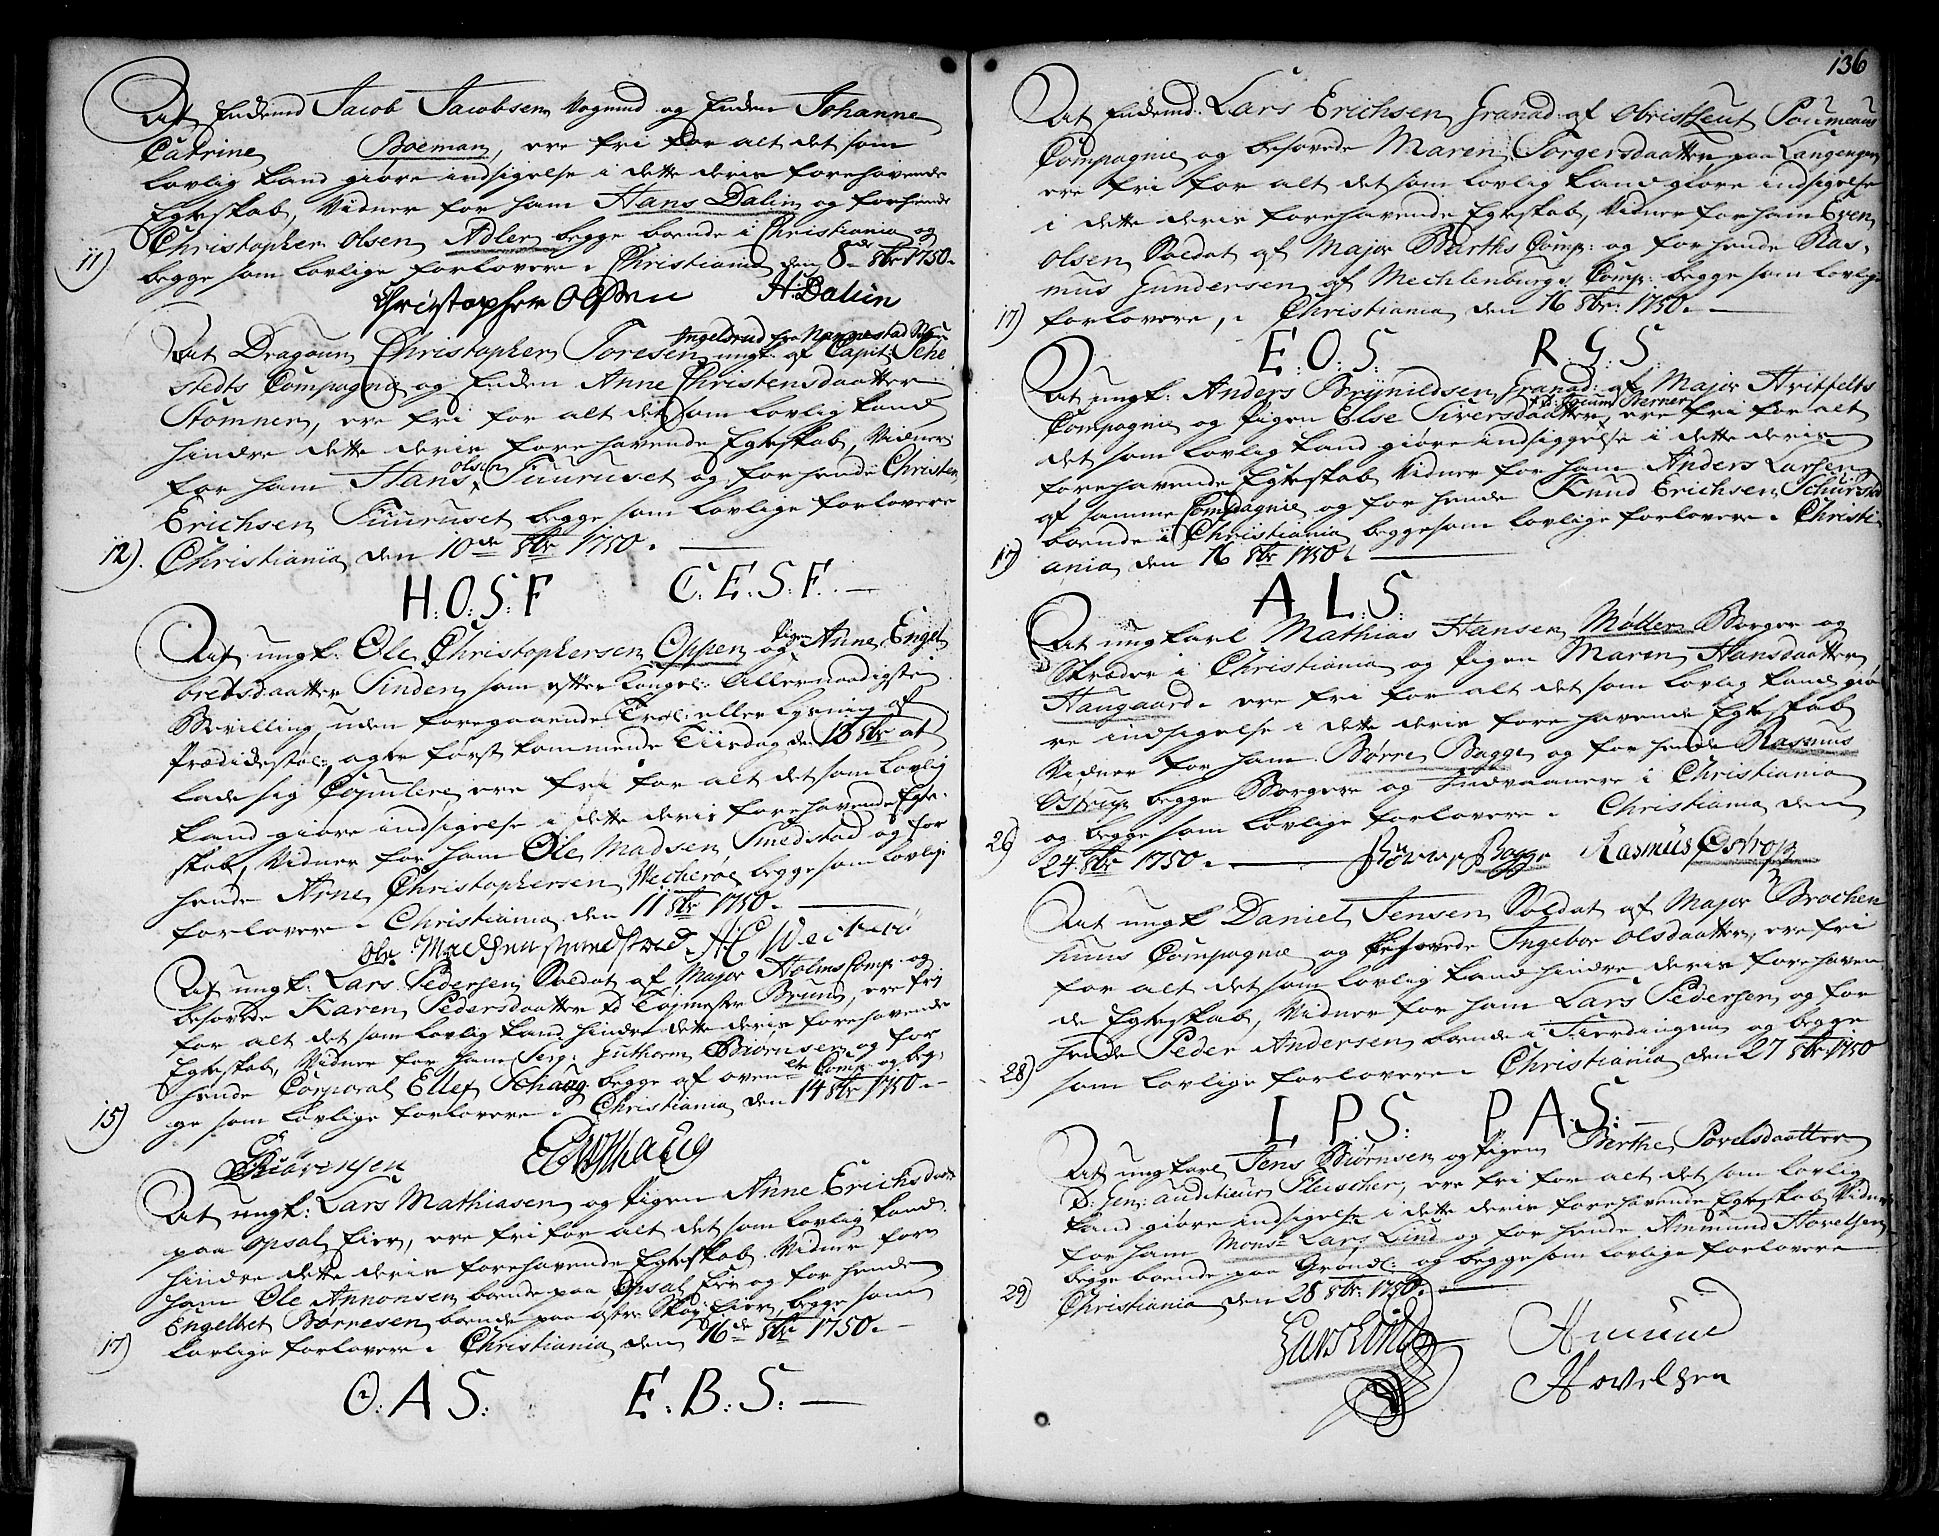 At Enkemd Jacob Jacobsen Vognmd og Enken Johanne
Catrine Boeman, ere fri for alt det som
lovlig kand giøre indsigelse i dette deris forehavende
Egteskab, Vidner for ham Hans Dalin og for hende
Christopher Olsen Adler begge boende i Christiania og
11) begge som lovlige forlovere. Christiania den 8de 8br 1750.
Christopher Olsen H. Dalin
Ingelsrud fra Nannestad
At Dragoun Christopher Toresen ungk. af Capit: Sehe
stedts Compagnie og Enken Anne Christensdaatter
Stomner, ere fri for alt det som lovlig kand
hindre dette deris forehavende Egteskab, Vidner
for ham Hans olsen Fuuruset og for hende Christen
Erichsen Fuuruset begge som lovlige forlovere
12). Christiania den 10de 8br 1750.
H: O: S: F C: E: S: F.
At ungk: Ole Christophersen Oppen og Pigen Anne Engel
bretsdaatter Linden som efter Kongel: Allernaadigste
Bevilling uden foregaaende Trol: eller Lysning af
Prædikestol: agter først kommende Tiirsdag den 13 8br at
lade sig Copulere, ere fri for alt det som lovlig
kand giøre indsigelse i dette deris forehavende Egte-
skab, Vidner for ham Ole Madsen Smedstad og for
hende Arne Christophersen Wecherøe begge som lovlige
forlovere. Christiania den 11 8br 1750.
Ole Madsen Smedstad A C Weckerø
At ungk: Lars Pedersen Soldat af Major Holms Comp: og
besovede Karen Pedersdaatter Bruun, ere fri
for alt det som lovlig kand hindre dette deris forehavende
Egteskab, Vidner for ham Serg: Guthorm Biørnsen og for
hende Corporal Ellef Schaug begge af ovenlte Comp: og beg-
15) ge som lovlige forlovere. Christiania den 14 8br 1750.
G Biørensen E Schaug
At ungk: Lars Mathiasen og Pigen Anne Erichsdaatt
paa Opsal Eier, ere fri for alt det som lovlig kand
hindre dette deris forehavende Egteskab. Vidner for
ham Ole Annonsen boende paa Opsal Eie og for hende
Engelbret Børresen boende paa Østre Skøy: Eier, begge som
17) lovlige forlovere. Christiania den 16de 8br 1750.
O: A S: E. B: S:
136
At Enkemd: Lars Erichsen Granad: af Obristleut Poumeaus
Compagnie og besovede Maren Torgersdaatter paa Langengen
ere fri for alt det som lovlig kand giøre indsigelse
i dette deris forehavende Egteskab, Vidner for ham Even
Olsen Soldat af Major Barths Comp: og for hende Ras-
mus Gundersen af Mechlenburgs Comp: begge som lovlige
17) forlovere, Christiania den 16 8br: 1750.
E. O: S. R. G: S.
At ungk. Anders Brynildsen Granad: af Major Hvitfelts
Compagnie og Pigen Else Siversdaatter, ere fri for alt
det som lovlig kand giøre indsiggelse i dette deris
forehavende Egteskab Vidner for ham Anders Larsen
af samme Compagnie og for hende Knud Erichsen
boende i Christiania begge som lovlige forlovere. Christi-
17) ania den 16 8br 1750.
A. L: S:
At ungkarl Mathias Hansen Møller Borger og
Skræder i Christiania og Pigen Maren Hansdaatter
Haugaard. ere fri for alt det som lovlig kand giø-
re indsigelse i dette deris fore havende Egteskab
Vidner for ham Børre Bagge og for hende Rasmus
Østrup begge Borgere og Indvaanere i Christiania
og begge som lovlige forlovere. Christiania den
26) 24 8br 1750. Børre Bagge Rasmus Østrop
At ungk Daniel Jensen Soldat af Major Brochen
huus Compagnie og besovede Ingebor Olsdaatter, ere fri
for alt det som lovlig kand hindre deris forehaven-
de Egteskab, Vidner for ham Lars Pedersen og for
hende Peder Andersen boende i Fierdingen og begge
28) som lovlige forlovere. Christiania den 27 8br 1750
L P S: P. A. S:
At ungkarl Jens Biørnsen og Pigen Berthe Povelsdaatter
D: Gen: auditieur Fleischer, ere fri for alt det som lovlig
kand giøre indsigelse i dette deris forehavende Egteskab Vidner
for ham Monsr Lars Lund og for hende Ammund Hovelsen
begge boende paa Grønl: og begge som lovlige forlovere
29) Christiania den 28 8br: 1750.
Lars Lund Amund
Hovelsen